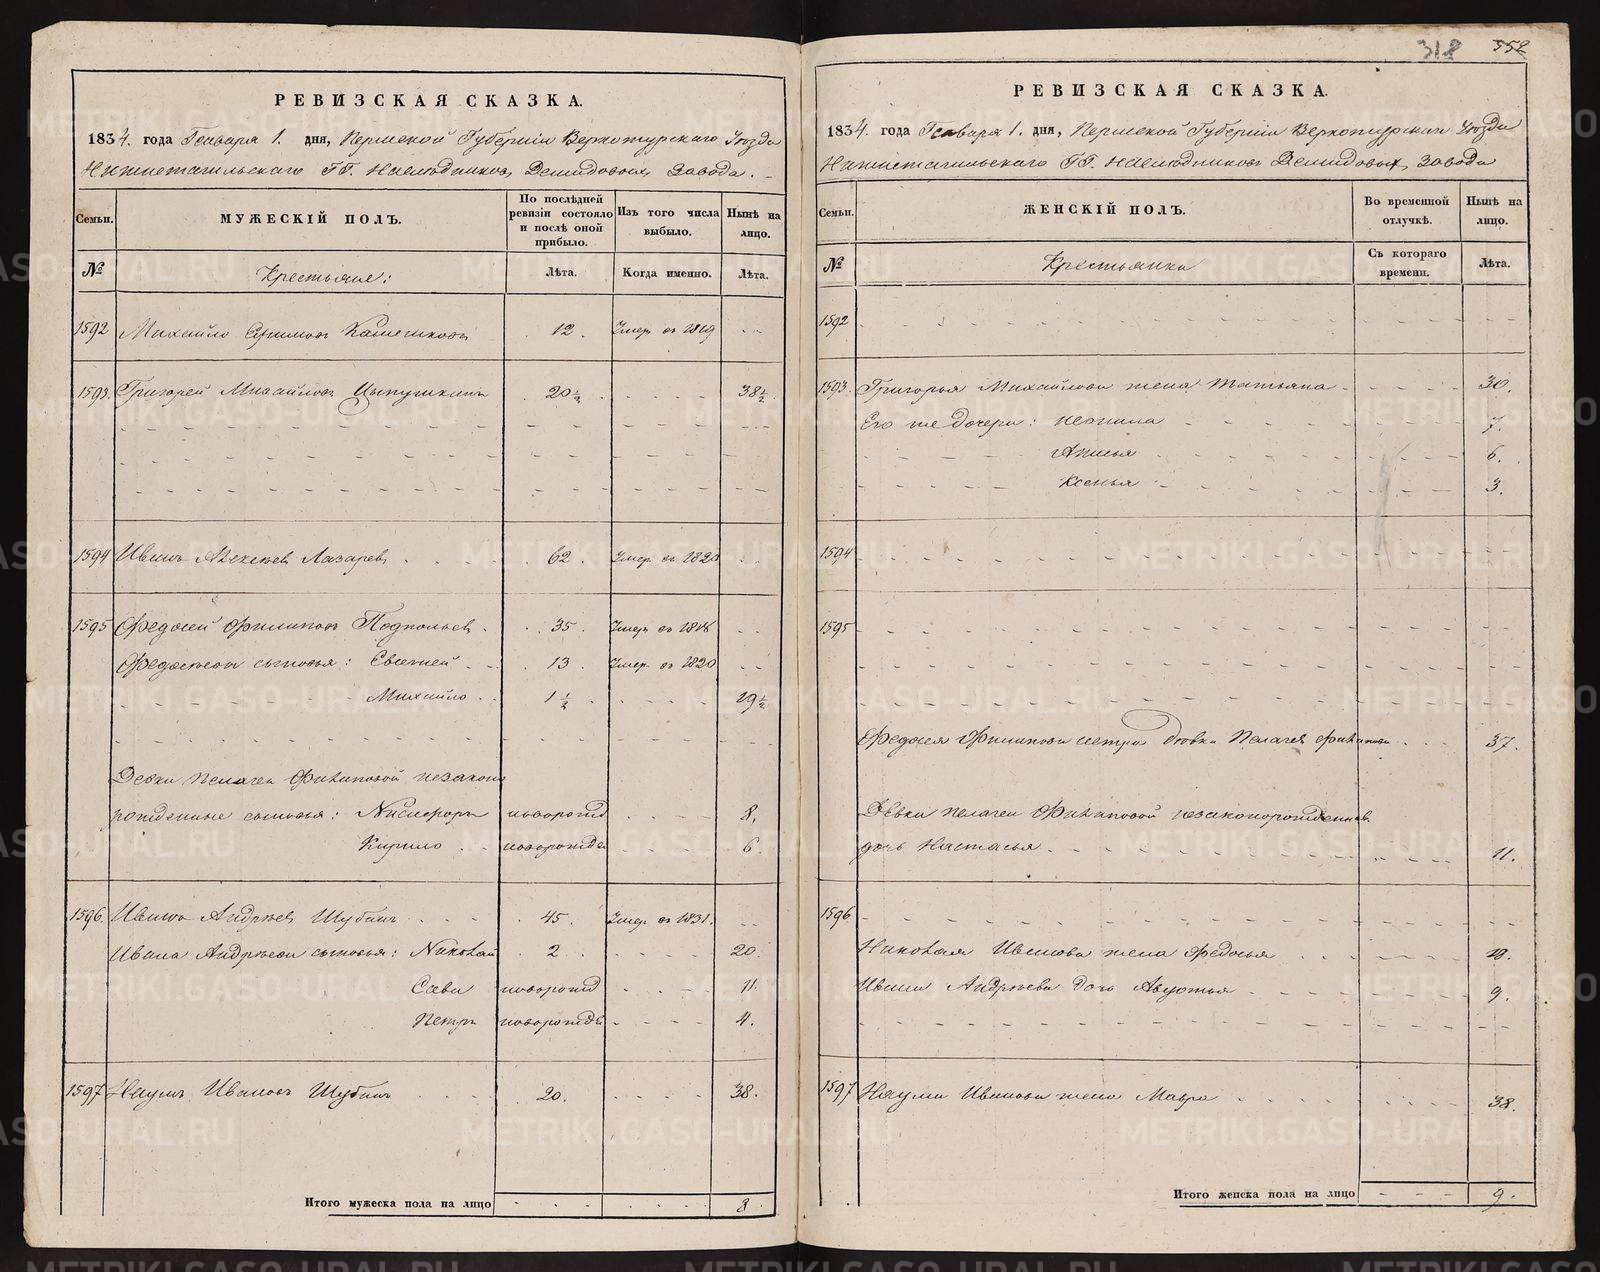 318 352
РЕВИЗСКАЯ СКАЗКА.
1834. года Генваря 1. дня, Пермской Губернiи Верхотурскаго Уѣзда
Нижнетагильскаго ГГ. Наслѣдниковъ Демидовыхъ Завода.
Семьи. МУЖЕСКIЙ ПОЛЪ. По послѣдней ревизiи состояло и послѣ оной прибыло. Изъ того числа выбыло. Нынѣ на лицо.
№ Крестьяне: Лѣта. Когда именно. Лѣта.
1592 Михайло Ефимовъ 12. Умер. въ 1819
1593. Григорей Михайловъ Цыпушкинъ 20½ 38½
1594 Иванъ Алексѣевъ Лазаревъ 62. Умер. въ 1820
1595 Федосей Филиповъ 35. Умеръ въ
Федосеевы сыновья: Евсегней 13. Умер. въ 1820
Михайло 1½ 19½
Девки Пелагеи Филиповой незакон
рожденные сыновья: Никифоръ новорожд 8.
Кирило новорожде 6
1596. Иванъ Андрѣевъ Шубинъ 45. Умер. въ 1831.
Ивана Андрѣева сыновья: Николай 2 20.
Сава новорожд 11.
Петръ новорожде 4.
1597 Наумъ Ивановъ Шубинъ 20. 38.
Итого мужеска пола на лицо 8.
РЕВИЗСКАЯ СКАЗКА.
1834. года Генваря 1. дня, Пермской Губернiи Верхотурскаго Уѣзда
Нижнетагильскаго ГГ. Наслѣдниковъ Демидовыхъ, Завода
Семьи. ЖЕНСКIЙ ПОЛЪ. Во временной отлучкѣ. Нынѣ на лицо.
№ Крестьянки Съ котораго времени. Лѣта.
1592
1593. Григорья Михайлова жена Татьяна 30.
Его же дочери: Неонила 7.
Анисья 6.
Ксенья 3.
1594
1595
Федосея Филипова сестра Девка Пелагея Филипова 37.
Девки Пелагеи Филиповой незаконорожденная
дочь Настасья 11.
1596
Николая Иванова жена Федосья 19.
Ивана Андрѣева дочь Авдотья 9.
1597 Наума Иванова жена Мавра 38.
Итого женска пола на лицо 9.
METRIKI.GASO-URAL.RU